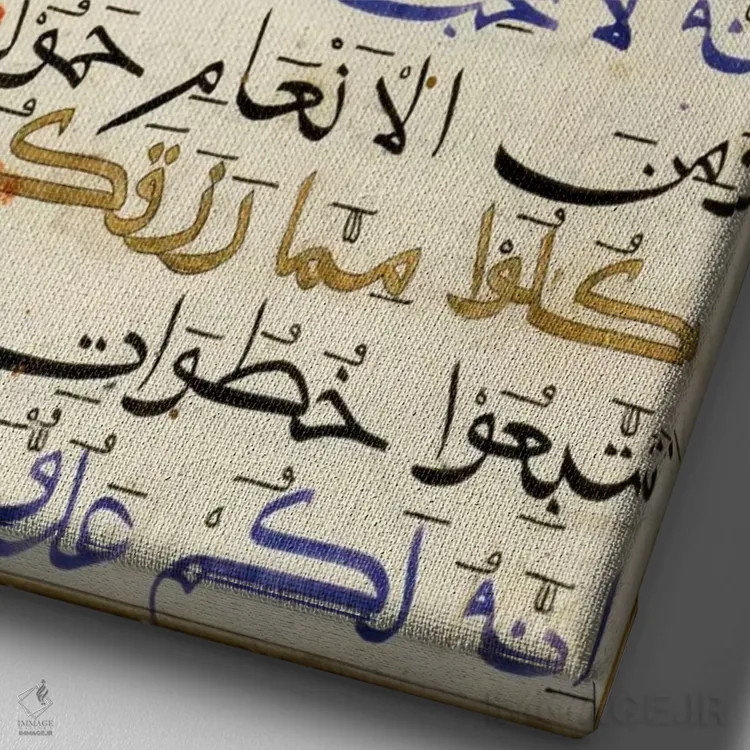 نه لا يحب
ومن الانعام حمو
كلوا مما رزقك
تتبعوا خطوات
انه لكم عدو
IMMAGE
IMMAGE.IR
IMMAGE.IR